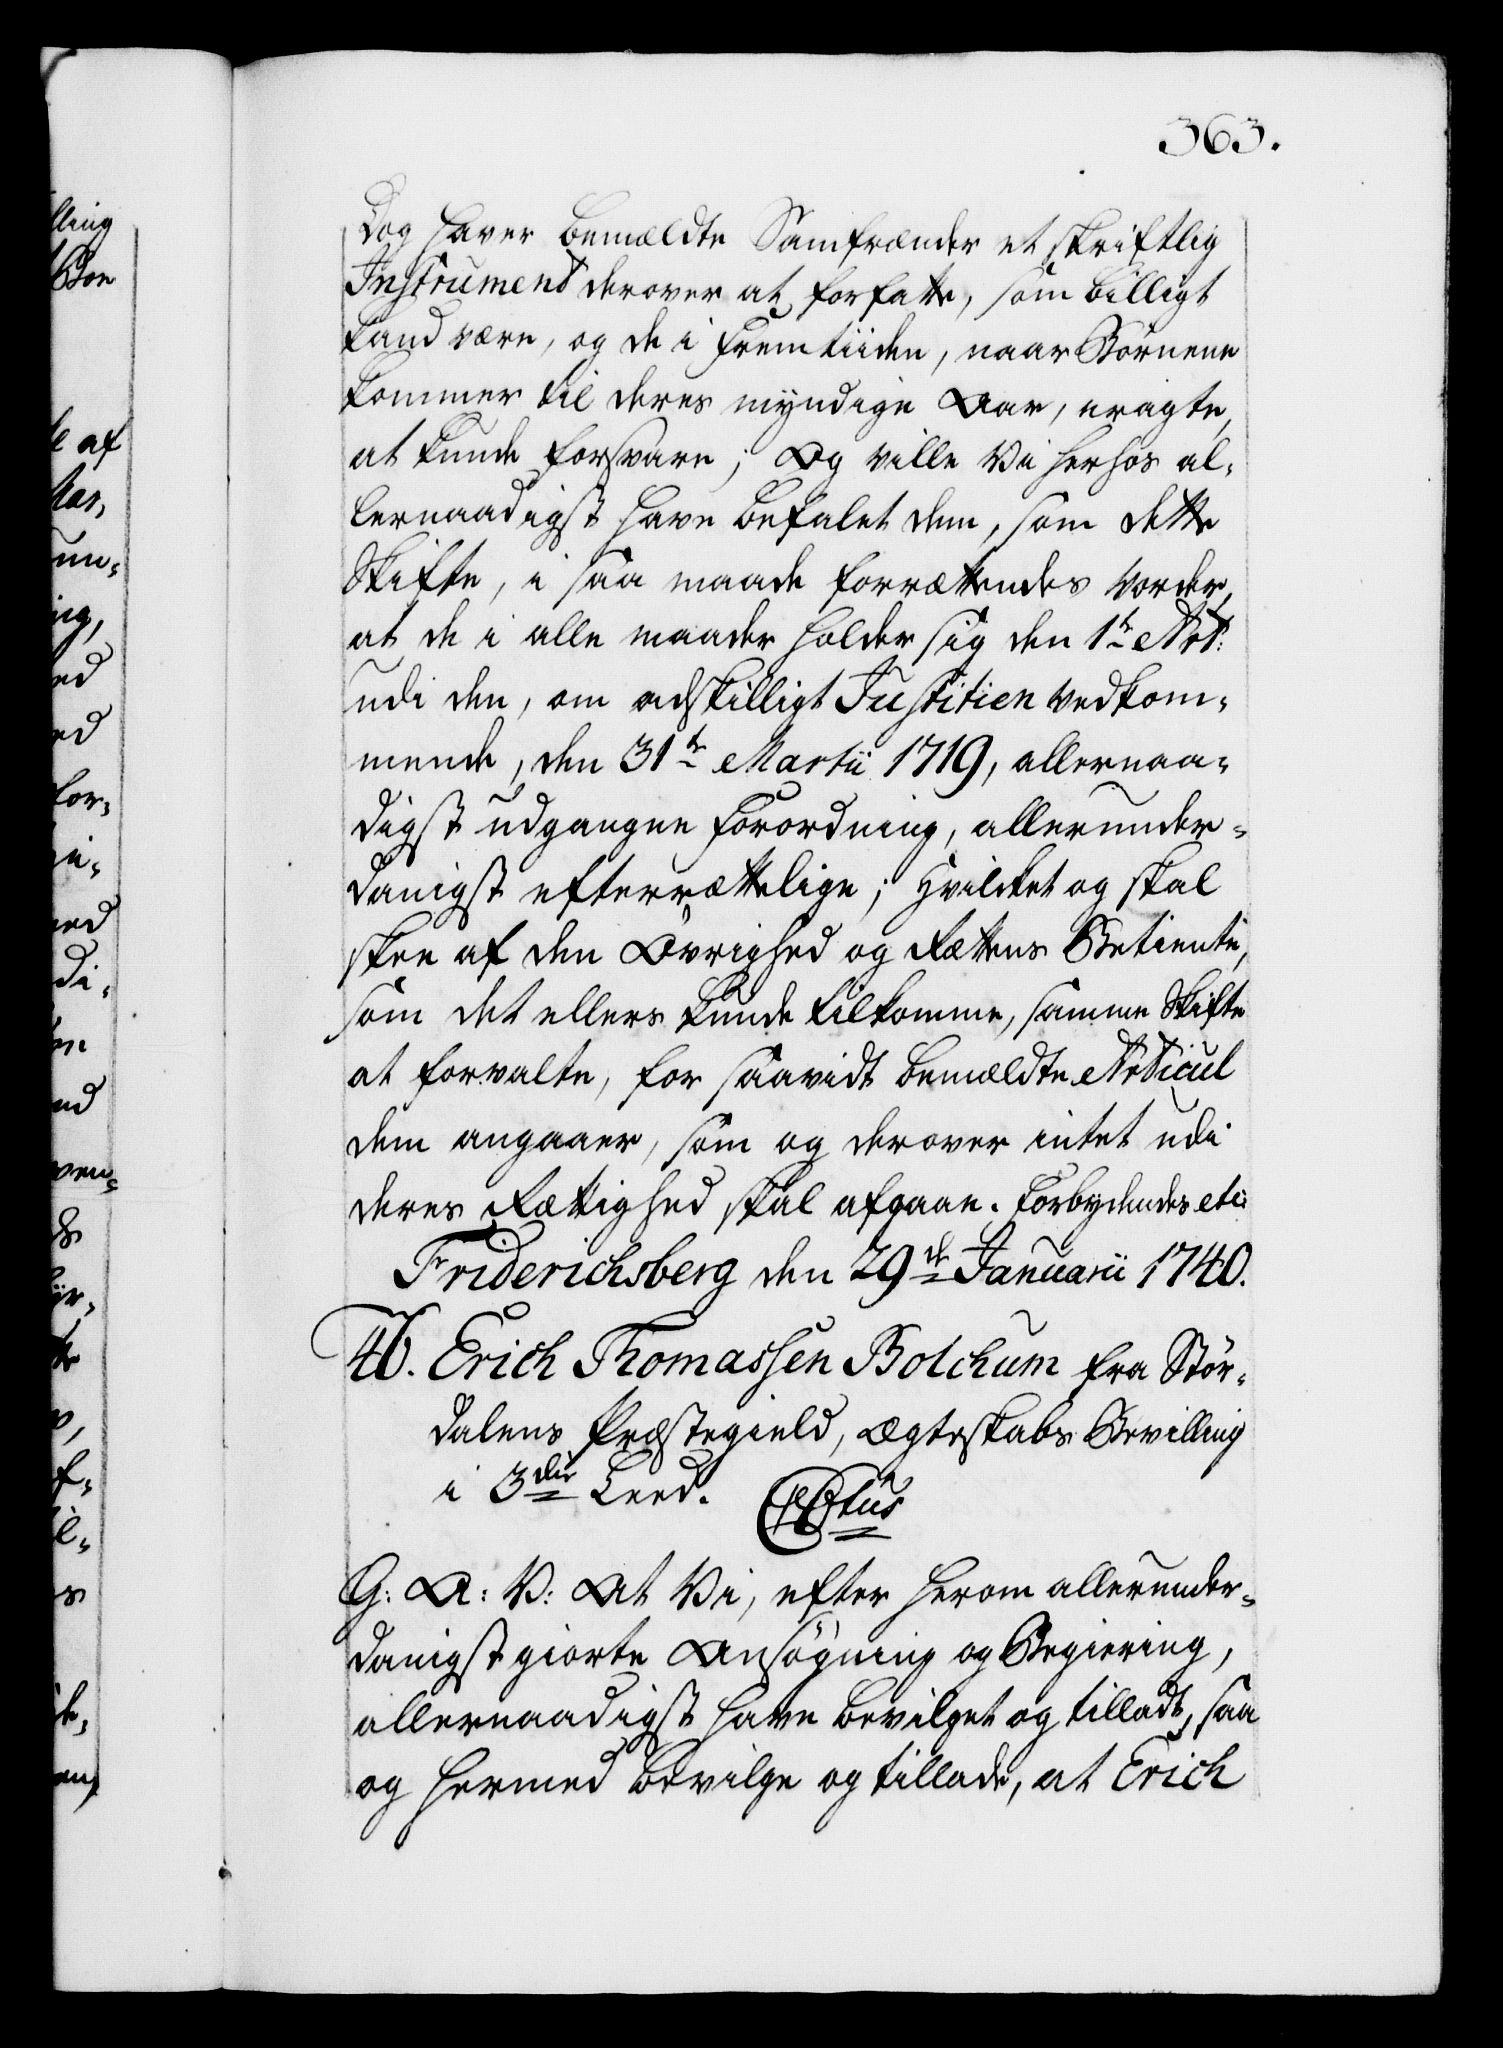 363.
Dog haver bemældte Samfrænder et skriftlig
Instrument derover at forfatte, som billigt
kand være, og de i Fremtiiden, naar Børnene
kommer til deres myndige Aar, eragte,
at kunde forsvare; Og ville Vi herhos al-
lernaadigst have befalet dem, som dette
Skifte, i saa maade forrættendes vorder,
at de i alle maader holder sig den 1te Art:
udi den, om adskilligt Justitien vedkom-
mende, den 31te Martii 1719, allernaa-
digst udgangne Forordning, allerunder-
danigst efterrættelige; Hvilcket og skal
skee af den Øvrighed og Rættens Betiente,
som det ellers kunde tilkomme, samme Skifte
at forvalte, for saavidt bemældte Articul
dem angaaer, som og derover intet udi
deres Rættighed skal afgaae. Forbydendes etc:
Friderichsberg den 29de Januarii 1740.
46. Erich Thomassen Bolchum fra Stør-
dalens Præstegield, Ægteskabs Bevilling
i 3die Leed.
G: A: V: At Vi, efter herom allerunder-
danigst giorte Ansøgning og Begiering,
allernaadigst have bevilget og tilladt, saa
og hermed bevilge og tillade, at Erich
lling
af